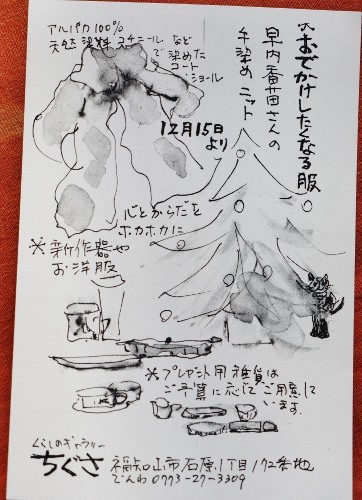 *おでかけしたくなる服
早内番苗さんの
手染め ニット
アルパカ100%
天然染料 スチール など
で染めた
コート
ショール
12月15日
より
心とからだを
ホカホカに
*新作器や
お洋服
*プレゼント用雑貨は
ご予算に応じてご用意して
います。
くらしのギャラリー
ちぐさ
福知山市石原1丁目172番地
でんわ 0773-27-3309